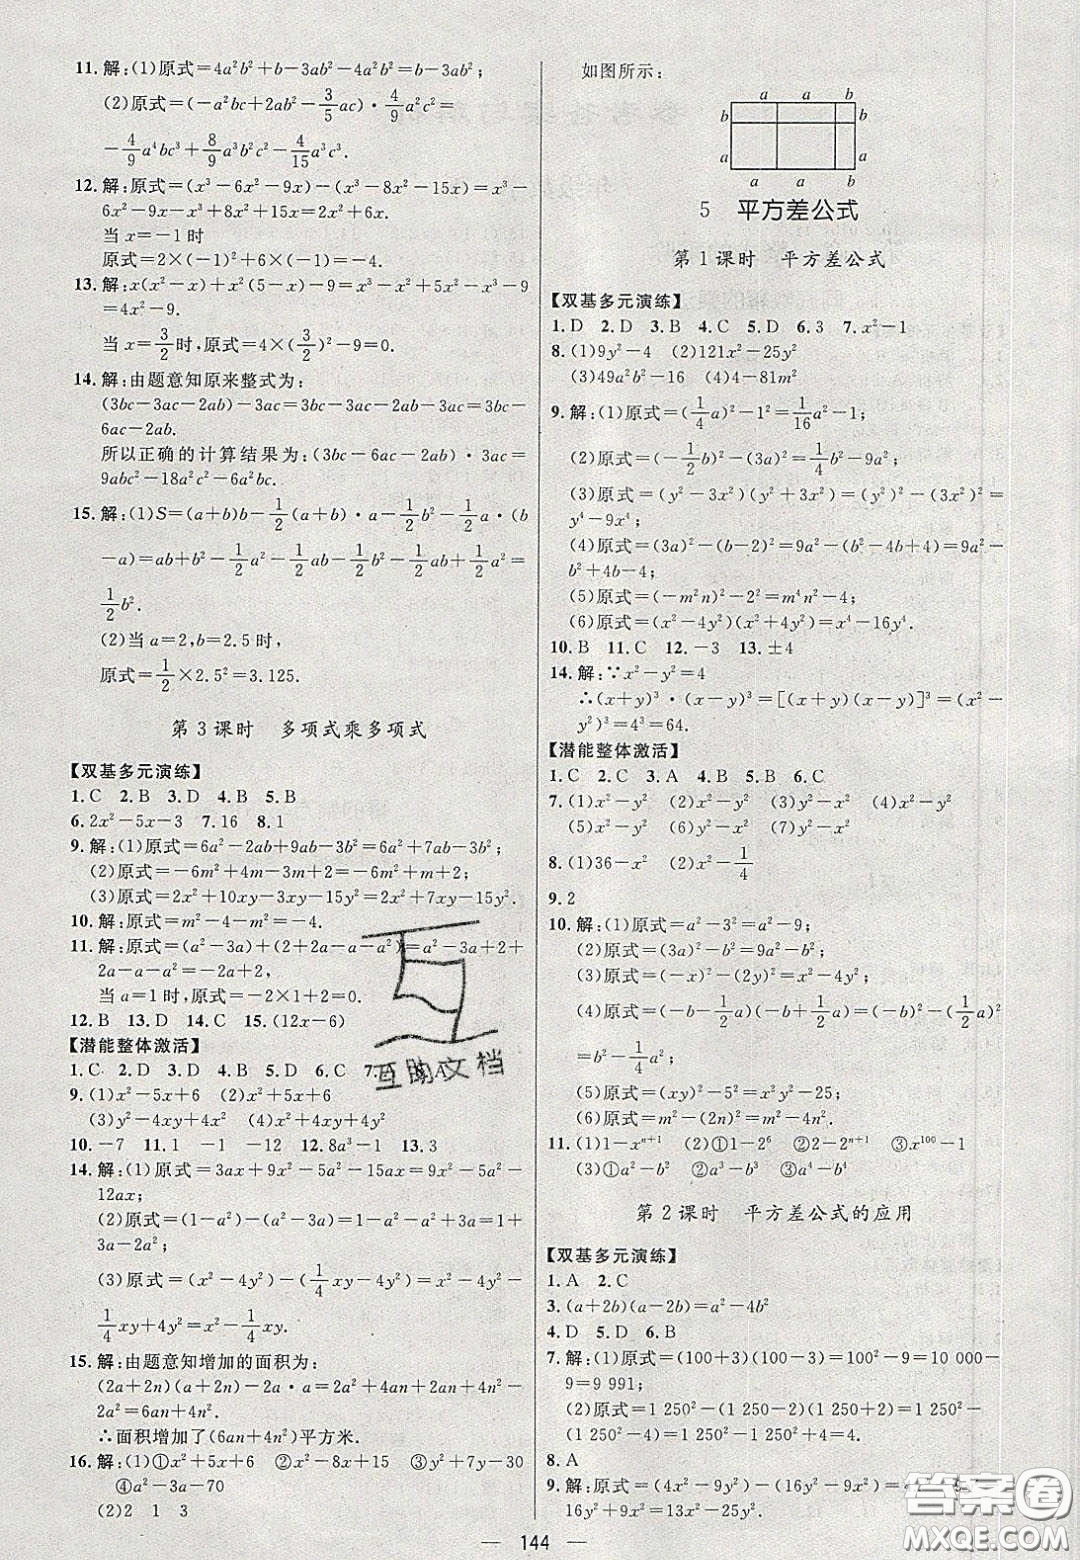 11. 解:(1)原式=4a²b²+b-3ab²-4a²b=ab²;
(2)原式=(-a²bc+2abc²-3/5ac)·4/9a²c²=
-4/9a⁴bc³+8/9a³bc⁴-4/15a³c³.
12. 解:原式=(x³-6x²-9x)-(x³-8x²-15x)+
6x²-9-x³-x³+8x²+15x=2x²+6x.
当x=-1时
原式=2×(-1)²+6×(-1)=-4.
13. 解:x(x²-x)+x²(5-x)-9=x³-x²+5x²-x³-9
=4x²-9.
当x=3/2时,原式=4×(3/2)²-9=0.
14. 解:由题意知原来整式为:
(3bc-3ac-2ab)-3ac=3bc-3ac-2ab-3ac=3bc-
6ac-2ab.
所以正确的计算结果为:(3bc-6ac-2ab)·3ac=
9abc²-18a²c²-6a²bc.
15. 解:(1)S=(a+b)b-1/2(a+b)·a-1/2b²-1/2a·(b
-a)=ab+b²-1/2a²-1/2ab-1/2b²-1/2ab+1/2a²=
1/2b².
(2)当a=2,b=2.5时,
原式=1/2×2.5²=3.125.
第3课时 多项式乘多项式
【双基多元演练】
1.C 2.B 3.D 4.B 5.B
6.2x²-5x-3 7.16 8.1
9. 解:(1)原式=6a²-2ab+9ab-3b²=6a²+7ab-3b²;
(2)原式=-6m²+4m-3m+2=-6m²+m+2;
(3)原式=2x²+10xy-3xy-15y²=2x²+7xy-15y².
10. 解:原式=m²-4-m²=-4.
11. 解:原式=(a²-3a)+(2+2a-a-a²)=a²-3a+2+
2a-a-a²=-2a+2,
当a=1时,原式=-2×1+2=0.
12.B 13.D 14.C 15.(12x-6)
【潜能整体激活】
1.C 2.D 3.D 4.B 5.B 6.C 7.A 8.A
9.(1)x²-5x+6 (2)x²+5x+6
(3)y²-4xy+4x² (4)x²+4xy+4y²
10.-7 11.1 -1 -12 12.8a³-1 13.3
14. 解:(1)原式=3ax+9x²-5a²-15ax=9x²-5a²-
12ax;
(2)原式=(1-a²)-(a²-3a)=1-a²-a²+3a=1+
3a-2a²;
(3)原式=(x²-4y²)-(1/4xy-4y²)=x²-4y²-
1/4xy+4y²=x²-1/4xy.
15. 解:由题意知增加的面积为:
(2a+2n)(a+2n)-2a·a=2a²+4an+2an+4n²-
2a²=6an+4n²
∴面积增加了(6an+4n²)平方米.
16. 解:(1)①x²+5x+6 ②x²-8x+15 ③y²+7y-30
④a²-3a-70
(2)2 1 3
如图所示:
a a b
b b
a a
a a b
5 平方差公式
第1课时 平方差公式
【双基多元演练】
1.D 2.D 3.B 4.C 5.D 6.3 7.x²-1
8.(1)9y²-4 (2)121x²-25y²
(3)49a²b²-16 (4)4-81m²
9. 解:(1)原式=(1/4a)²-1²=1/16a²-1;
(2)原式=(-1/2b)²-(3a)²=1/4b²-9a²;
(3)原式=(y²-3x²)(y²+3x²)=(y²)²-(3x²)²=
y⁴-9x⁴;
(4)原式=(3a)²-(b-2)²=9a²-(b²-4b+4)=9a²-
b²+4b-4;
(5)原式=(-m²n)²-2²=m⁴n²-4;
(6)原式=(x²-4y²)(x²+4y²)=x⁴-16y⁴.
10.B 11.C 12.-3 13.±4
14. 解:∵x²-y²=4
∴(x+y)³·(x-y)³=[(x+y)(x-y)]³=(x²-
y²)³=4³=64.
【潜能整体激活】
1.C 2.C 3.A 4.B 5.C 6.C
7.(1)x²-y² (2)x²-y² (3)y²-x² (4)x²-y²
(5)x²-y² (6)y²-x²
8.(1)36-x² (2)x²-1/4
9.2
10. 解:(1)原式=a²-3²=a²-9;
(2)原式=(3a)²-b²=9a²-b²;
(3)原式=(-x)²-(2y)²=x²-4y²;
(4)原式=(-b-1/2a)(-b+1/2a)=(-b)²-(1/2a)²
=b²-1/4a²;
(5)原式=(xy)²-5²=x²y²-25;
(6)原式=m²-(2n)²=m²-4n².
11.(1)1-xⁿ⁺¹ (2)①1-2⁶ ②2-2ⁿ⁺¹ ③x¹⁰⁰-1
(3)①a²-b² ②a³-b³ ③a⁴-b⁴
第2课时 平方差公式的应用
【双基多元演练】
1.A 2.C
3.(a+2b)(a-2b)=a²-4b²
4.D 5.D 6.B
7. 解:(1)原式=(100+3)(100-3)=100²-9=10 000
-9=9 991;
(2)原式=1 250²-(1 250-2)(1 250+2)=1 250²-
(1 250²-4)=1 250²-1 250²+4=4.
8.A
9. 解:原式=(4x²-9y²)-(16y²-9x²)=4x²-9y²-
16y²+9x²=13x²-25y².
互助文档
144
答案圈
MXQE.COM